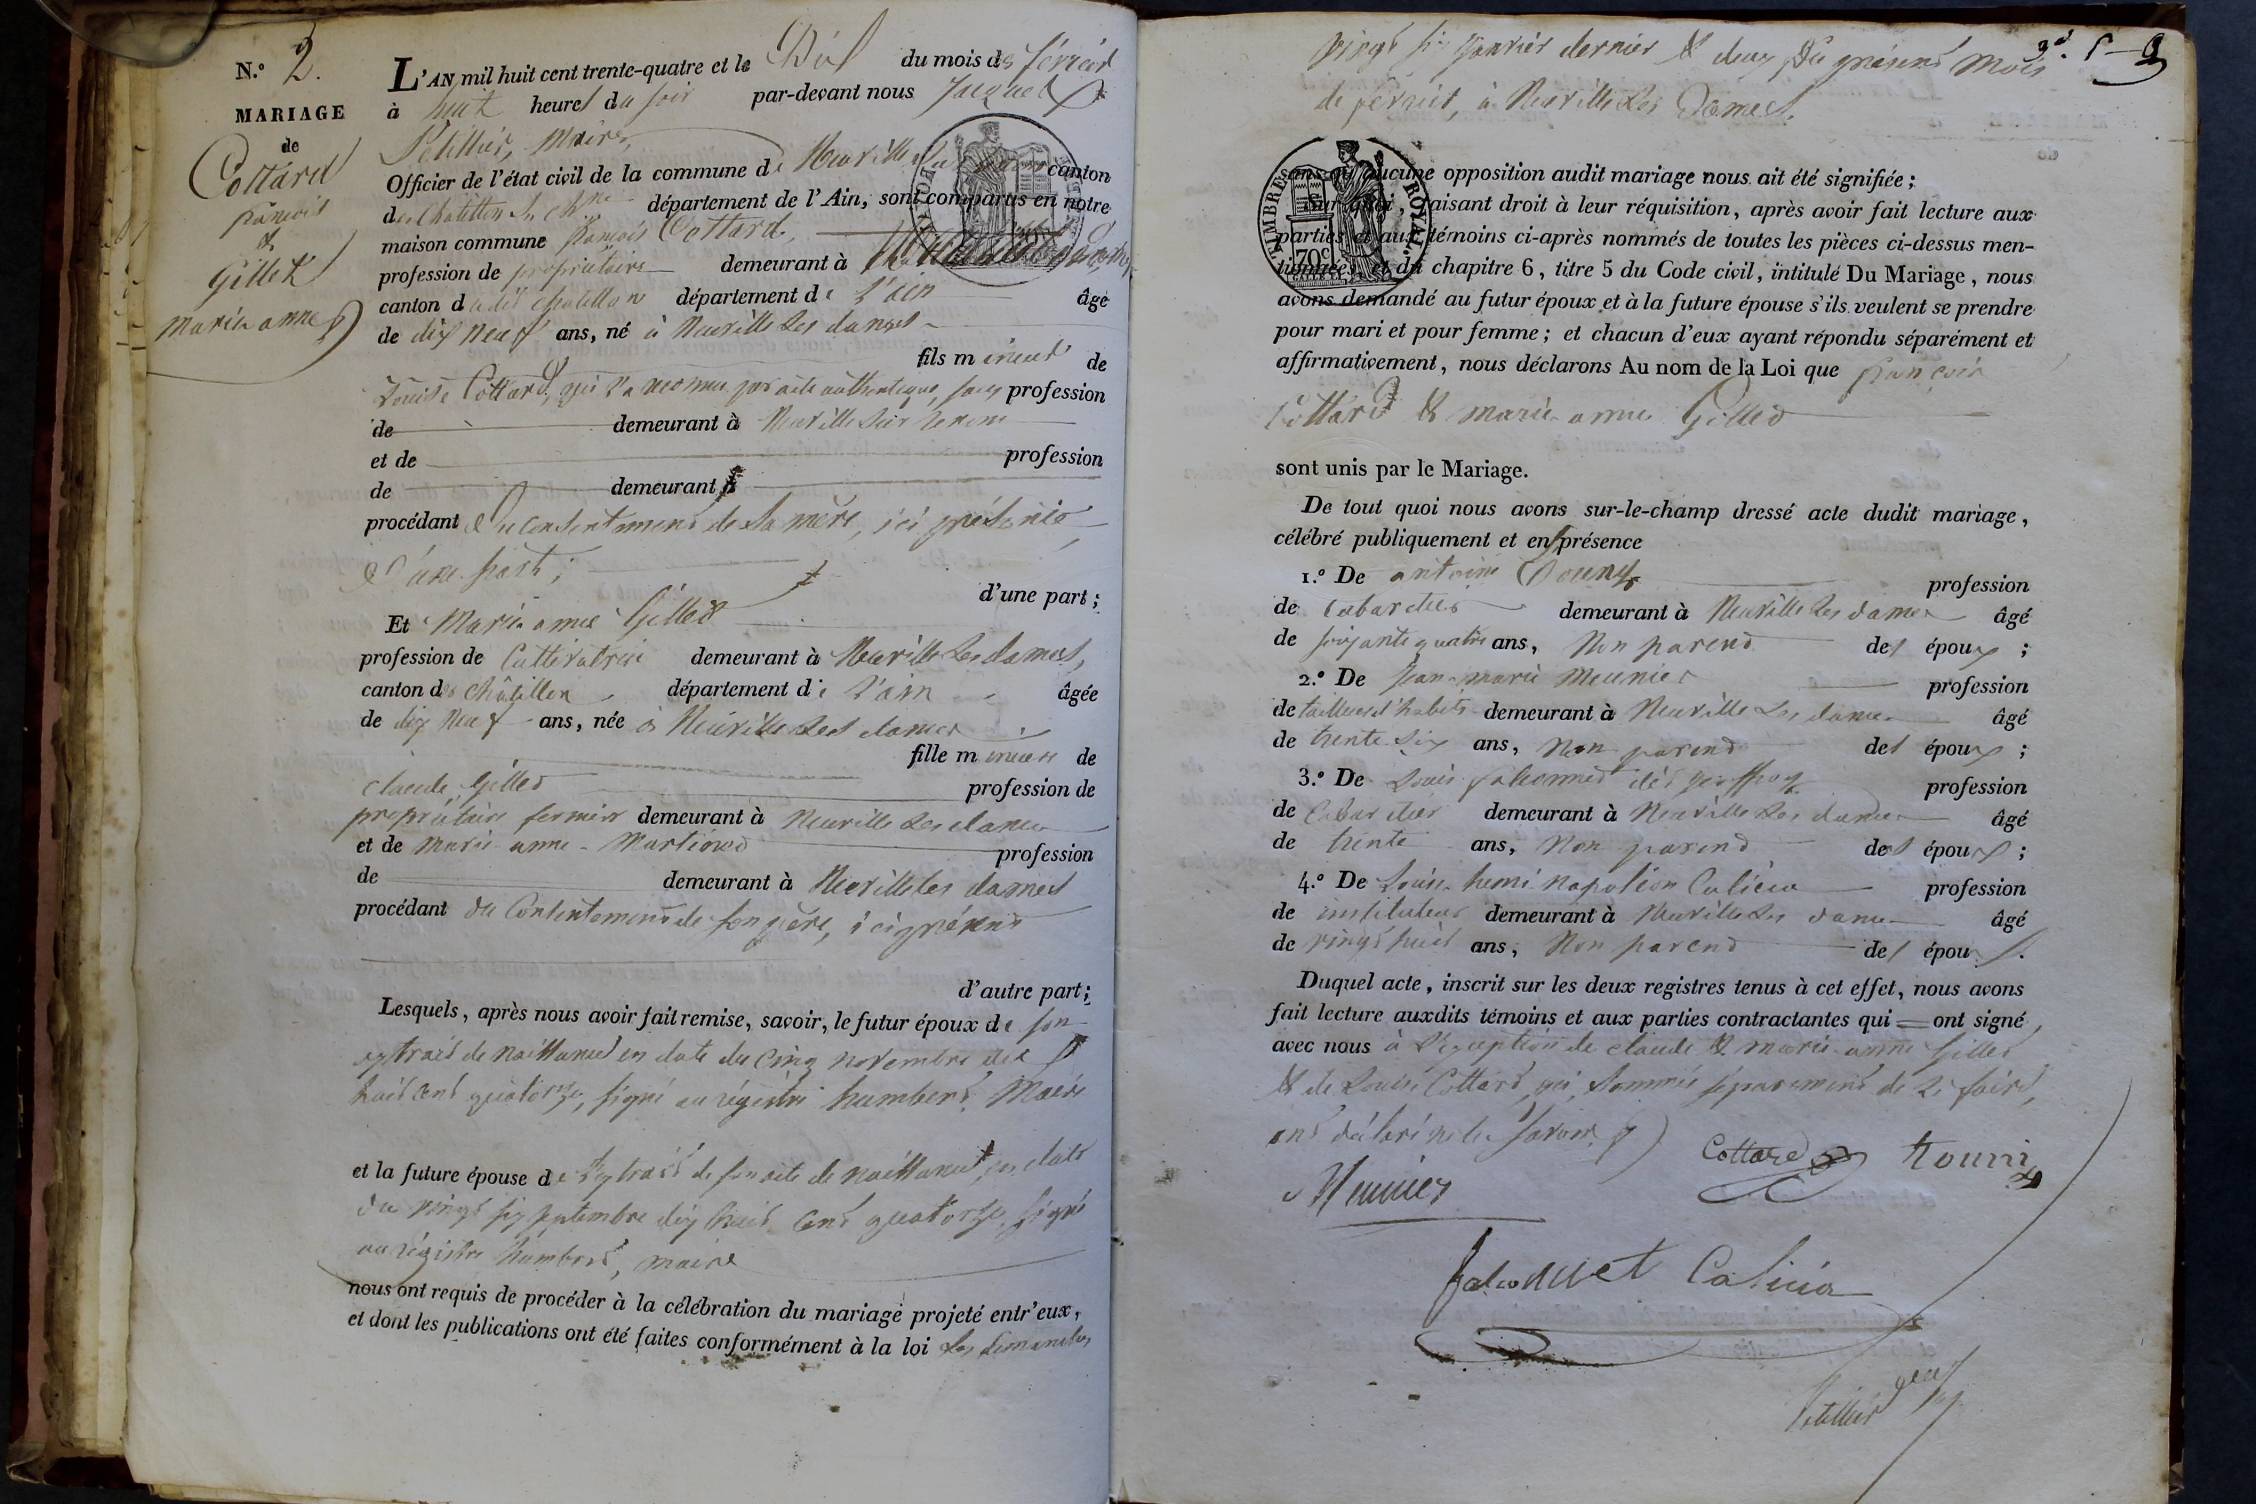 N.º 2.
MARIAGE
de
Cottard
françois
&
Gillet
marie anne
L'AN mil huit cent trente-quatre et le Dix du mois de février
à huit heures du soir par-devant nous Jacques
Pelillier, Maire,
Officier de l'état civil de la commune de Neuville les canton
de Chatillon département de l'Ain, sont comparus en notre
maison commune françois Cottard,
profession de propriétaire demeurant à
canton dudit chatillon département de l'ain âgé
de dix neuf ans, né à Neuville les dames
fils mineur de
Louise Cottard, qui l'a reconnu par acte authentique, sans profession
de demeurant à Neuville sur renom
et de profession
de demeurant à
procédant du consentement de sa mère, ici présente
d'une part;
d'une part;
Et Marie anne Gillet
profession de Cultivatrice demeurant à Neuville les dames,
canton de châtillon département de l'ain âgée
de dix neuf ans, née à Neuville les dames
fille mineure de
claude Gillet profession de
propriétaire fermier demeurant à Neuville les dames
et de marie anne profession
de demeurant à Neuville les dames
procédant du Consentement de son père, ici présent
d'autre part;
Lesquels, après nous avoir fait remise, savoir, le futur époux de son
extrait de naissance en date du cinq novembre dix
huit cent quatorze, signé au régistre humbert, Maire
et la future épouse de l'extrait de son acte de naissance, en date
du vingt six septembre dix huit cent quatorze, signé
au régistre humbert, maire
nous ont requis de procéder à la célébration du mariage projeté entr'eux,
et dont les publications ont été faites conformément à la loi les dimanches
vingt six janvier dernier & deux du présent mois
de février, à Neuville les Dames.
TIMBRE ROYAL
70c
sans qu'aucune opposition audit mariage nous ait été signifiée;
Sur quoi, faisant droit à leur réquisition, après avoir fait lecture aux
parties et aux témoins ci-après nommés de toutes les pièces ci-dessus men-
tionnées, et du chapitre 6, titre 5 du Code civil, intitulé Du Mariage, nous
avons demandé au futur époux et à la future épouse s'ils veulent se prendre
pour mari et pour femme; et chacun d'eux ayant répondu séparément et
affirmativement, nous déclarons Au nom de la Loi que françois
Cottard & marie anne Gillet
sont unis par le Mariage.
De tout quoi nous avons sur-le-champ dressé acte dudit mariage,
célébré publiquement et en présence
1.º De antoine profession
de Cabaretier demeurant à Neuville les dames âgé
de soixante quatre ans, Non parent des époux;
2.º De Jean-marie Meunier profession
de tailleur d'habits demeurant à Neuville les dames âgé
de trente six ans, Non parent des époux;
3.º De Louis falconnet dit geoffray profession
de Cabaretier demeurant à Neuville les dames âgé
de trente ans, Non parent des époux;
4.º De Louis henri napoléon Calicia profession
de instituteur demeurant à Neuville les dames âgé
de vingt huit ans, Non parent des époux.
Duquel acte, inscrit sur les deux registres tenus à cet effet, nous avons
fait lecture auxdits témoins et aux parties contractantes qui ont signé,
avec nous à l'exception de claude & marie anne Gillet
& de Louise Cottard, qui, sommés séparément de le faire,
ont déclaré ne le savoir
Cottard
Meunier
falconnet Calicia